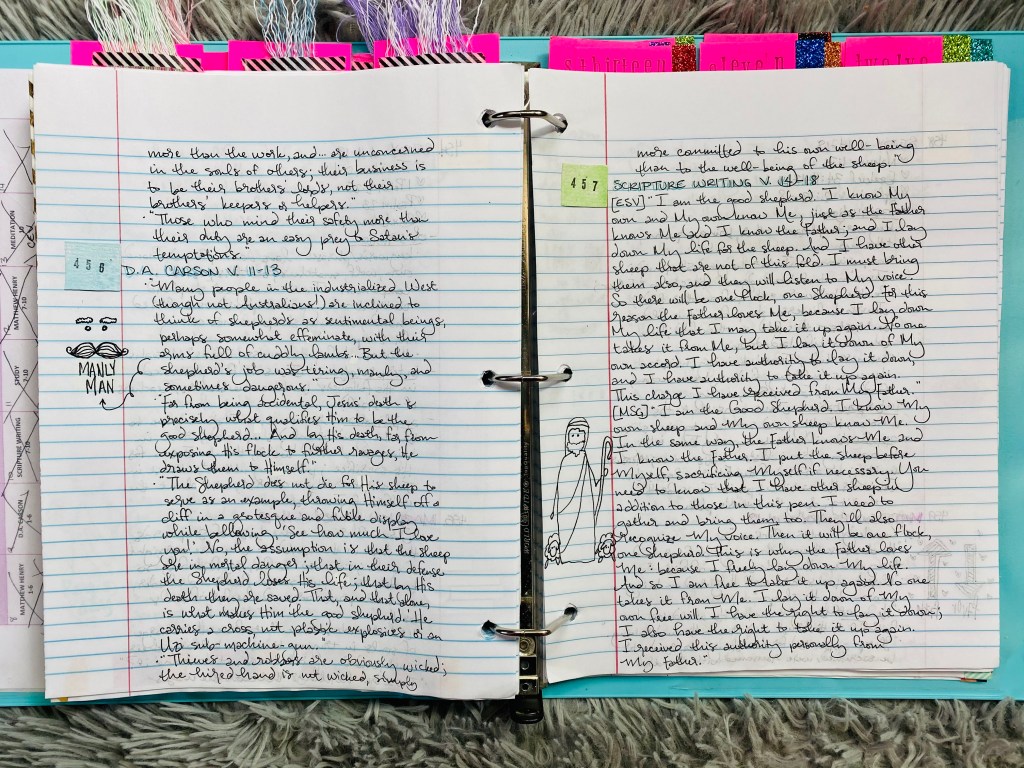 thirteen
eleven
twelve
more than the work, and... are unconcerned
in the souls of others; their business is
to be their brothers' lords, not their
brothers' keepers or helpers."
"Those who mind their safety more than
their duty are an easy prey to Satan's
temptations."
456
D.A. CARSON V. 11-13
"Many people in the industrialized West
(though not Australians!) are inclined to
think of shepherds as sentimental beings,
perhaps somewhat effeminate, with their
arms full of cuddly lambs... But the
shepherd's job was tiring, manly, and
sometimes dangerous."
MANLY
MAN
"Far from being accidental, Jesus' death is
precisely what qualifies Him to be the
good shepherd... And by His death, far from
exposing His flock to further ravages, He
draws them to Himself."
"The Shepherd does not die for His sheep to
serve as an example, throwing Himself off a
cliff in a grotesque and futile display
while bellowing, 'See how much I love
you!' No, the assumption is that the sheep
are in mortal danger; that in their defense
the Shepherd loses His life; that by His
death they are saved. That, and that alone,
is what makes Him the good shepherd. He
carries a cross, not plastic explosives or an
Uzi sub-machine-gun."
"Thieves and robbers are obviously wicked;
the hired hand is not wicked, simply
more committed to his own well-being
than to the well-being of the sheep."
457
SCRIPTURE WRITING V. 14-18
[ESV] "I am the good shepherd. I know My
own and My own know Me, just as the Father
knows Me and I know the Father; and I lay
down My life for the sheep. And I have other
sheep that are not of this fold. I must bring
them also, and they will listen to My voice.
So there will be one flock, one Shepherd. For this
reason the Father loves Me, because I lay down
My life that I may take it up again. No one
takes it from Me, but I lay it down of My
own accord. I have authority to lay it down,
and I have authority to take it up again.
This charge I have received from My Father."
[MSG] "I am the Good Shepherd. I know My
own sheep and My own sheep know Me.
In the same way, the Father knows Me and
I know the Father. I put the sheep before
Myself, sacrificing Myself if necessary. You
need to know that I have other sheep in
addition to those in this pen. I need to
gather and bring them, too. They'll also
recognize My voice. Then it will be one flock,
one Shepherd. This is why the Father loves
Me: because I freely lay down My life.
And so I am free to take it up again. No one
takes it from Me. I lay it down of My
own free will. I have the right to lay it down;
I also have the right to take it up again.
I received this authority personally from
My Father."
MEDITATION
7-10
MATTHEW HENRY
7-10
STUDY
SCRIPTURE WRITING
D.A. CARSON
1-6
MATTHEW HENRY
1-6